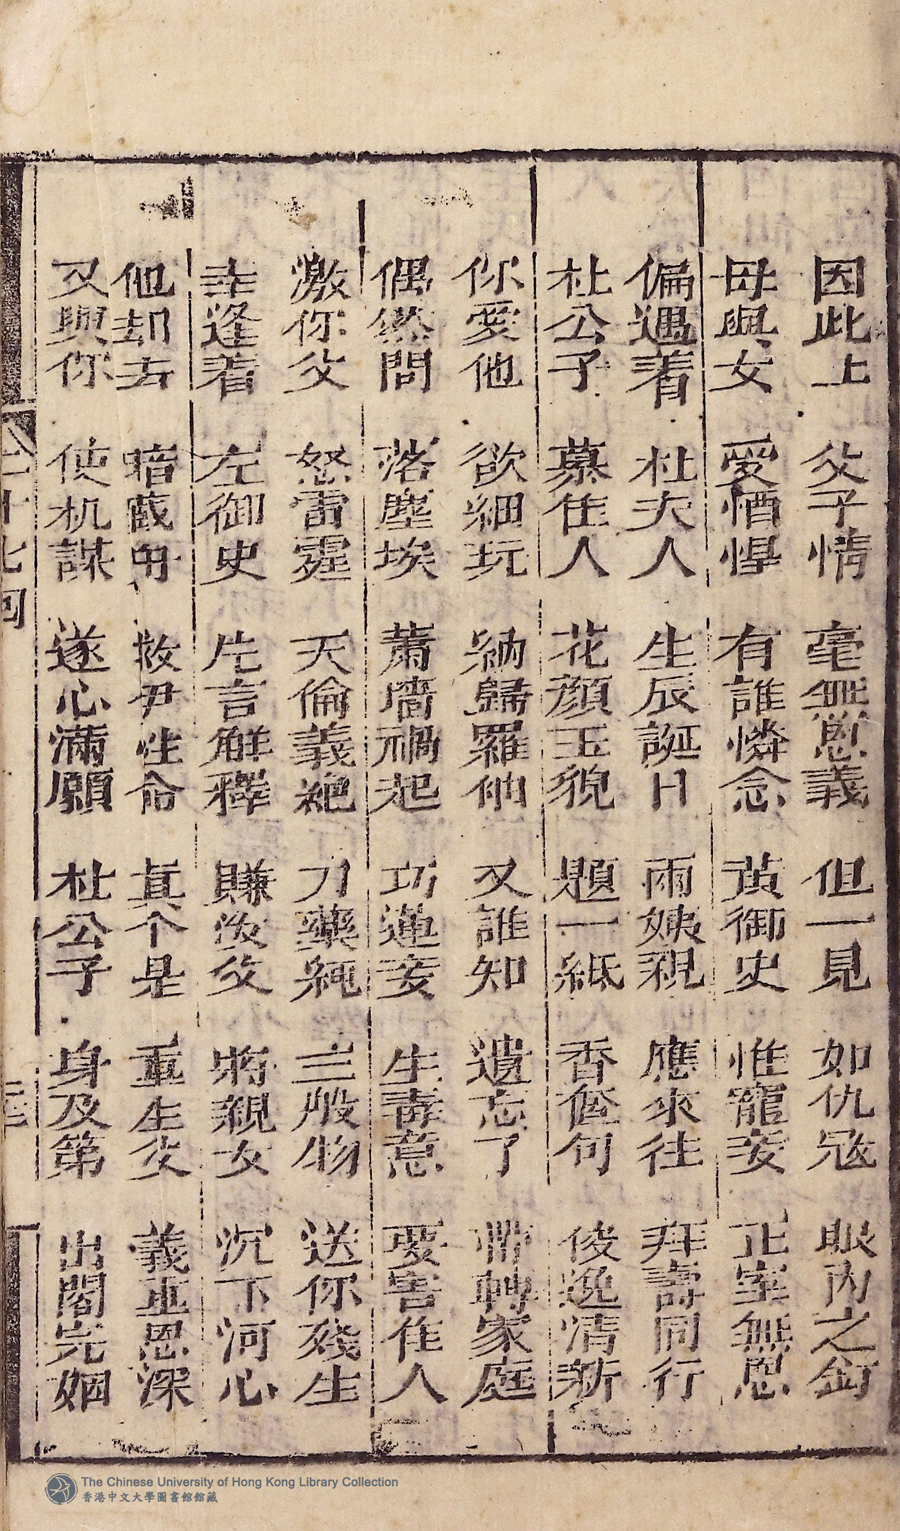 因此上 父子情 毫無恩義 但一見 如仇冦 眼內之釘
母與女 愛惜惺 有誰憐念 黃御史 惟寵妾 正室無恩
偏遇着 杜夫人 生辰誕日 兩姨親 應來往 拜壽同行
杜公子 慕隹人 花顏玉貌 題一紙 香奩句 俊逸清新
你愛他 欲細玩 納歸羅袖 又誰知 遺忘了 帶轉家庭
偶然間 落塵埃 蕭墻禍起 巧蓮妾 生毒意 要害隹人
激你父 怒雷霆 天倫義絕 刀藥繩 三般物 送你殘生
幸逢着 左御史 片言解釋 賺汝父 將親女 沉下河心
他却去 暗藏舟 救伊性命 真个是 重生父 義重恩深
又與你 使机謀 遂心滿願 杜公子 身及第 出閣完姻
二十七回
The Chinese University of Hong Kong Library Collection
香港中文大學圖書館館藏